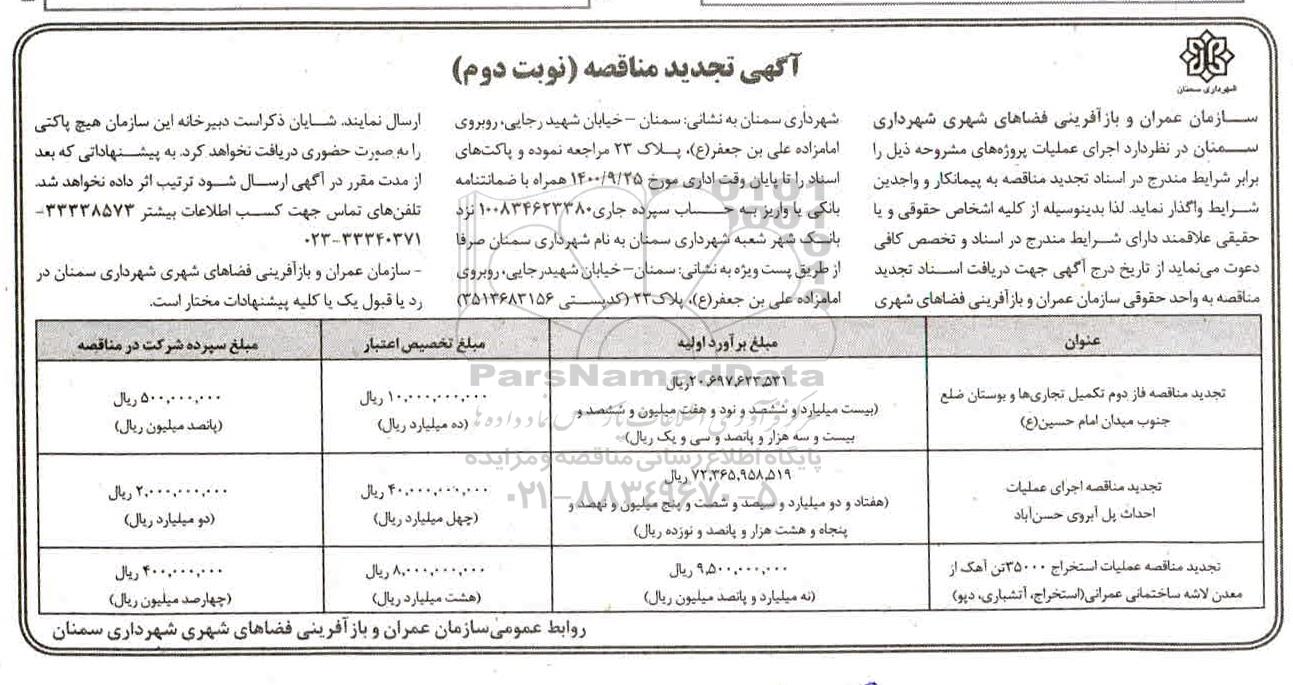 شهرداری سمنان
آگهی تجدید مناقصه (نوبت دوم)
سازمان عمران و بازآفرینی فضاهای شهری شهرداری
سمنان در نظردارد اجرای عملیات پروژه‌های مشروحه ذیل را
برابر شرایط مندرج در اسناد تجدید مناقصه به پیمانکار و واجدین
شرایط واگذار نماید. لذا بدینوسیله از کلیه اشخاص حقوقی و یا
حقیقی علاقمند دارای شرایط مندرج در اسناد و تخصص کافی
دعوت می‌نماید از تاریخ درج آگهی جهت دریافت اسناد تجدید
مناقصه به واحد حقوقی سازمان عمران و بازآفرینی فضاهای شهری
شهرداری سمنان به نشانی: سمنان – خیابان شهید رجایی، روبروی
امامزاده علی بن جعفر(ع)، پلاک ۲۳ مراجعه نموده و پاکت‌های
اسناد را تا پایان وقت اداری مورخ ۱۴۰۰/۹/۲۵ همراه با ضمانتنامه
بانکی یا واریز به حساب سپرده جاری ۱۰۰۸۳۴۶۲۳۳۸۰ نزد
بانک شهر شعبه شهرداری سمنان به نام شهرداری سمنان صرفا
از طریق پست ویژه به نشانی: سمنان – خیابان شهیدرجایی، روبروی
امامزاده علی بن جعفر(ع)، پلاک۲۳ (کدپستی ۳۵۱۳۶۸۳۱۵۶)
ارسال نمایند. شایان ذکراست دبیرخانه این سازمان هیچ پاکتی
را به صورت حضوری دریافت نخواهد کرد. به پیشنهاداتی که بعد
از مدت مقرر در آگهی ارسال شود ترتیب اثر داده نخواهد شد.
تلفن‌های تماس جهت کسب اطلاعات بیشتر ۳۳۳۳۸۵۷۳-
۰۲۳-۳۳۳۴۰۳۷۱
- سازمان عمران و بازآفرینی فضاهای شهری شهرداری سمنان در
رد یا قبول یک یا کلیه پیشنهادات مختار است.
عنوان
مبلغ برآورد اولیه
مبلغ تخصیص اعتبار
مبلغ سپرده شرکت در مناقصه
تجدید مناقصه فاز دوم تکمیل تجاری‌ها و بوستان ضلع
جنوب میدان امام حسین(ع)
۲۰,۶۹۷,۶۲۳,۵۳۱ ریال
(بیست میلیارد و ششصد و نود و هفت میلیون و ششصد و
بیست و سه هزار و پانصد و سی و یک ریال)
۱۰,۰۰۰,۰۰۰,۰۰۰ ریال
(ده میلیارد ریال)
۵۰۰,۰۰۰,۰۰۰ ریال
(پانصد میلیون ریال)
تجدید مناقصه اجرای عملیات
احداث پل آبروی حسن‌آباد
۷۲,۳۶۵,۹۵۸,۵۱۹ ریال
(هفتاد و دو میلیارد و سیصد و شصت و پنج میلیون و نهصد و
پنجاه و هشت هزار و پانصد و نوزده ریال)
۴۰,۰۰۰,۰۰۰,۰۰۰ ریال
(چهل میلیارد ریال)
۲,۰۰۰,۰۰۰,۰۰۰ ریال
(دو میلیارد ریال)
تجدید مناقصه عملیات استخراج ۳۵۰۰۰تن آهک از
معدن لاشه ساختمانی عمرانی(استخراج، آتشباری، دپو)
۹,۵۰۰,۰۰۰,۰۰۰ ریال
(نه میلیارد و پانصد میلیون ریال)
۸,۰۰۰,۰۰۰,۰۰۰ ریال
(هشت میلیارد ریال)
۴۰۰,۰۰۰,۰۰۰ ریال
(چهارصد میلیون ریال)
روابط عمومی سازمان عمران و بازآفرینی فضاهای شهری شهرداری سمنان
ParsNamadData
مرکز فرآوری اطلاعات پارس نماد داده ها
پایگاه اطلاع رسانی مناقصه و مزایده
۰۲۱-۸۸۳۴۹۶۷۰-۵